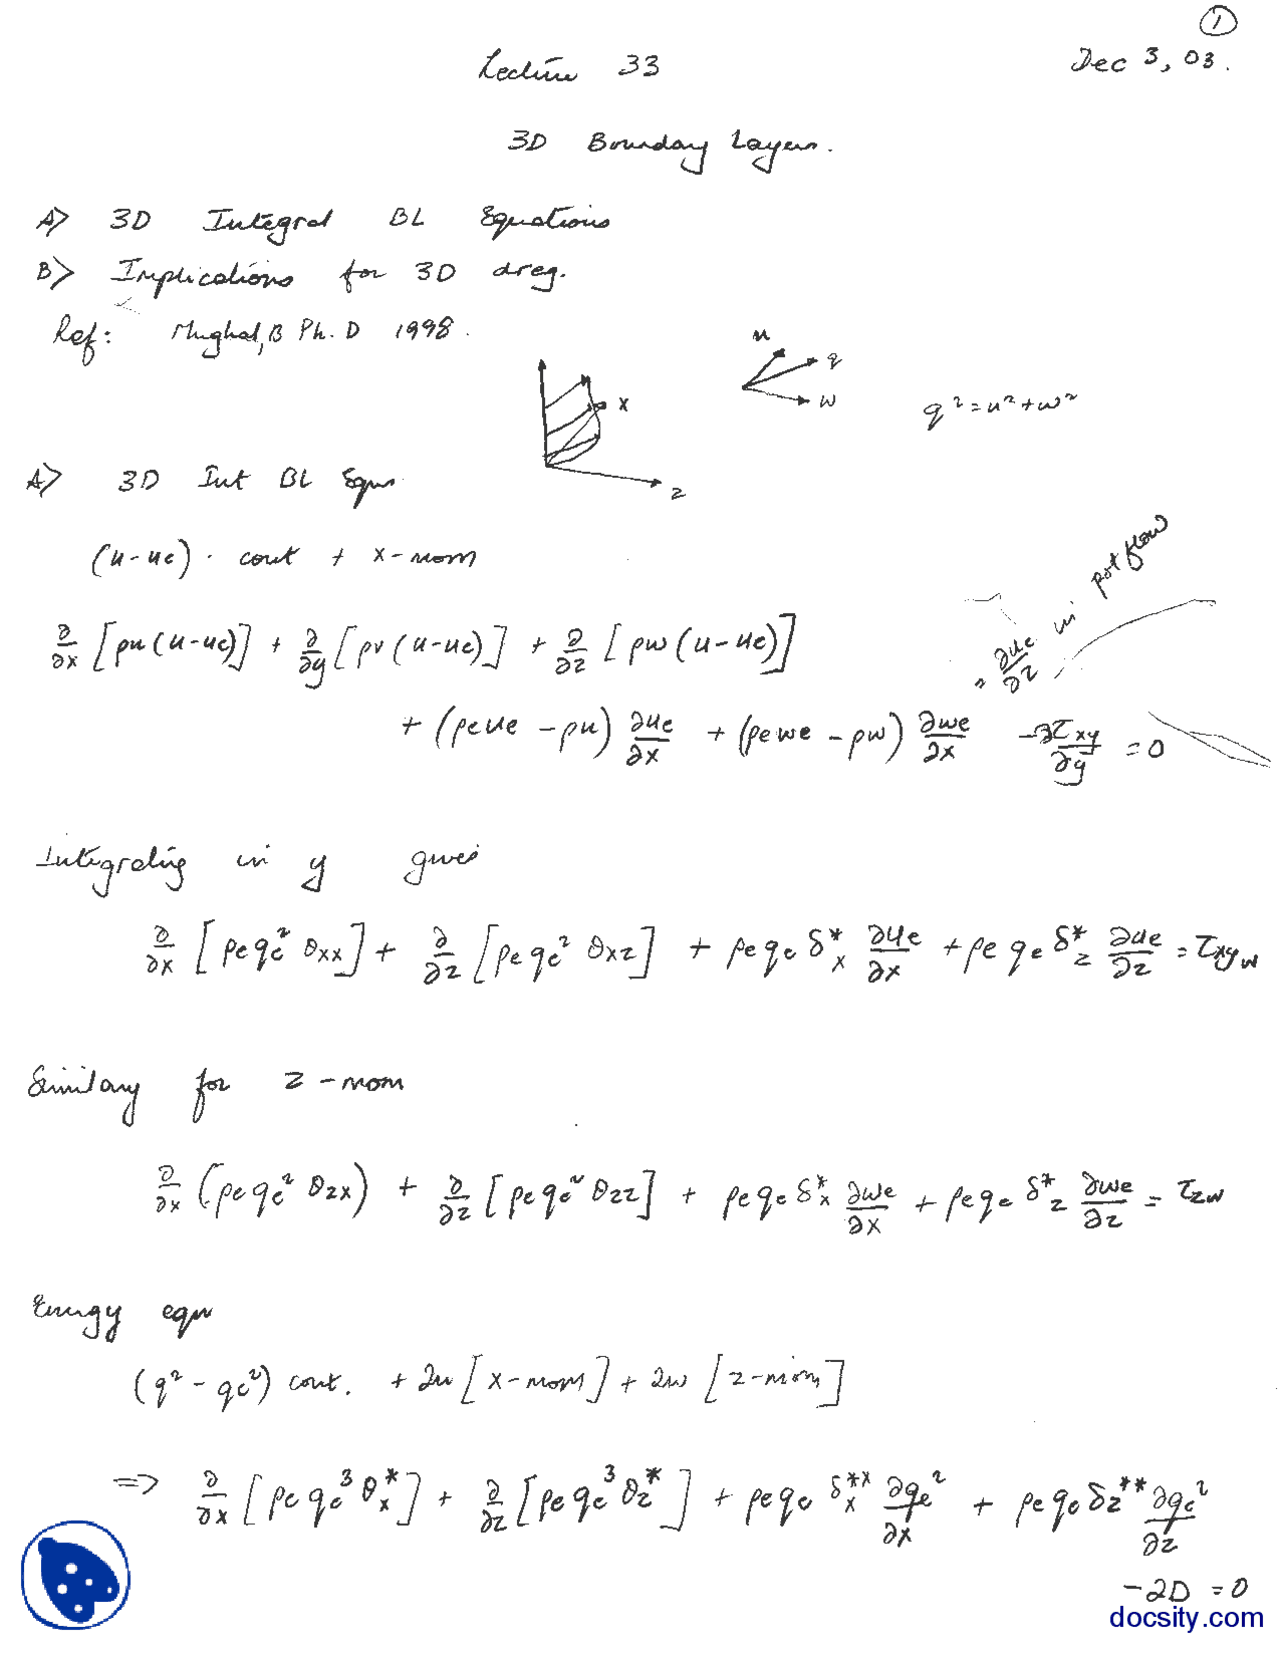 ①
Lecture 33 Dec 3, 03.
3D Boundary Layers.
A> 3D Integral BL Equations
B> Implications for 3D drag.
Ref: Mughal, B Ph. D 1998.
u q w x z
q² = u² + w²
A> 3D Int BL Eqns
(u-ue) · cont + x-mom
∂/∂x [ρu(u-ue)] + ∂/∂y [ρv(u-ue)] + ∂/∂z [ρw(u-ue)]
= ∂ue/∂z in pot flow
+ (ρeue - ρu) ∂ue/∂x + (ρewe - ρw) ∂we/∂x - ∂τxy/∂y = 0
Integrating in y gives
∂/∂x [ρe qe² θxx] + ∂/∂z [ρe qe² θxz] + ρe qe δ*x ∂ue/∂x + ρe qe δ*z ∂ue/∂z = τxyw
Similary for z-mom
∂/∂x (ρe qe² θzx) + ∂/∂z [ρe qe² θzz] + ρe qe δ*x ∂we/∂x + ρe qe δ*z ∂we/∂z = τzw
Energy eqn
(q² - qe²) cont. + 2u [x-mom] + 2w [z-mom]
=> ∂/∂x [ρe qe³ θx*] + ∂/∂z [ρe qe³ θz*] + ρe qe δx** ∂qe²/∂x + ρe qe δz** ∂qe²/∂z
-2D = 0
docsity.com